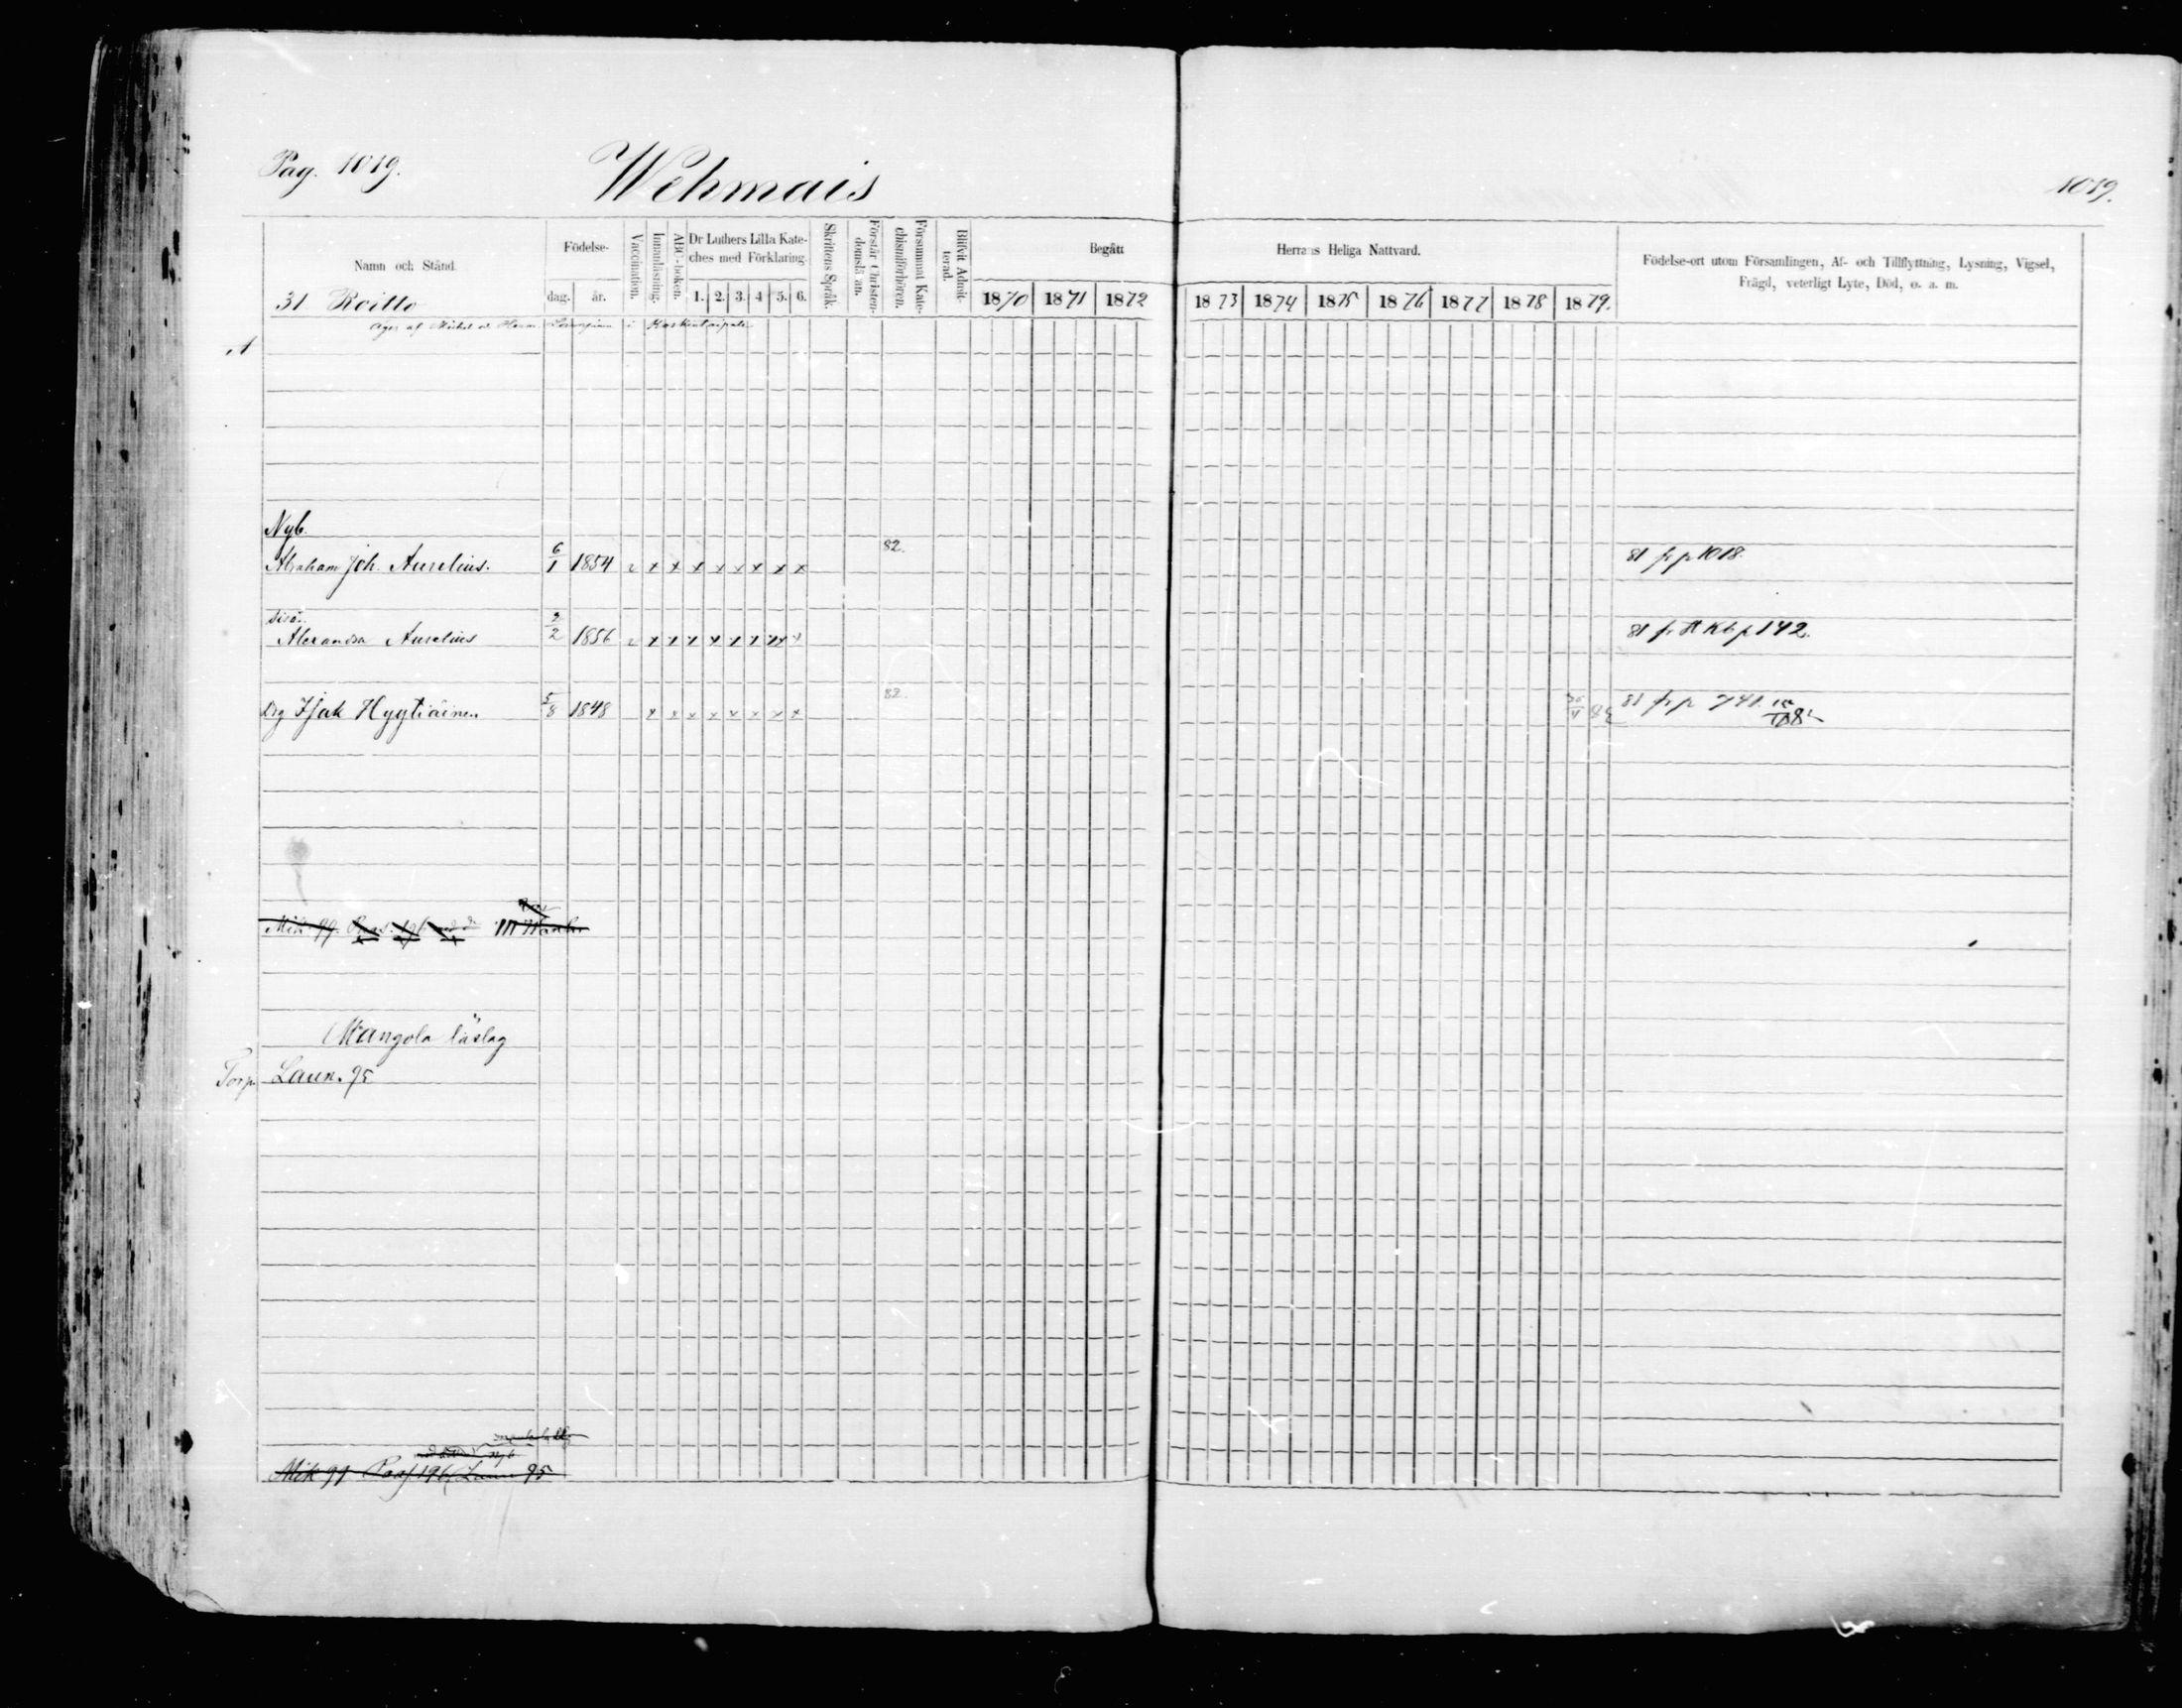 Pag. 1019.
Wehmais
1019.
Namn och Stånd.
Födelse-
dag. år.
Vaccination.
Innanläsning.
ABC-boken.
Dr Luthers Lilla Kate-
ches med Förklaring.
1. 2. 3. 4 5. 6.
Skriftens Språk.
Förstår Christen-
domslä an.
Försummat Kate-
chismiförhören.
Blifvit Admit-
terad.
Begått Herrans Heliga Nattvard.
1870 1871 1872 1873 1874 1875 1876 1877 1878 1879.
Födelse-ort utom Församlingen, Af- och Tillflyttning, Lysning, Vigsel,
Frägd, veterligt Lyte, Död, o. a. m.
31 Roitto
Nyb.
Abraham Joh. Aurelius. 6/1 1854 v x x x x x x x x 82. 81 fr p 1018.
Alexandra Aurelius 2/2 1856 v x x x x x x x x 81 fr p 142.
Drg Isak Hyytiäinen 5/8 1848 x x x x x x x x 82. 81 fr p 741.
Mangola läslag
Torp. Laun. 95